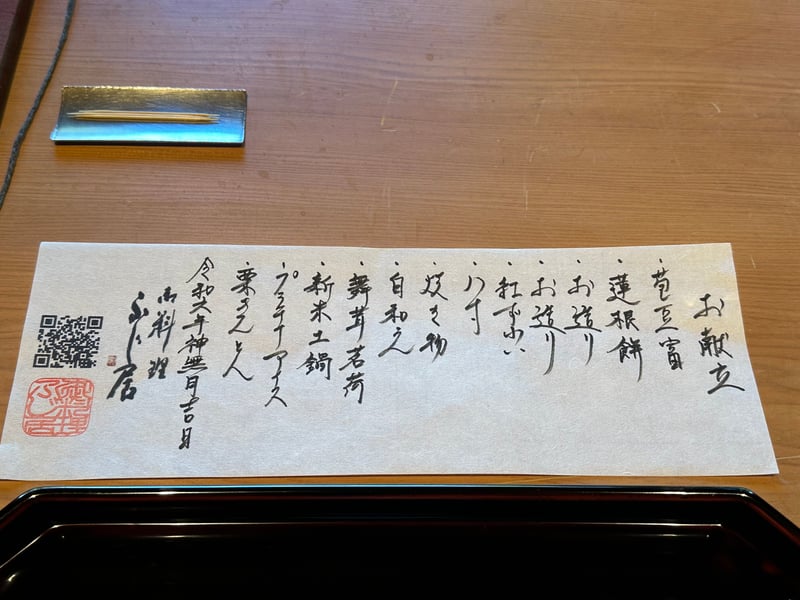 お献立
・苞豆富
・蓮根餅
・お造り
・お造り
・紅ずわい
・八寸
・焼き物
・白和え
・舞茸茗荷
・新米土鍋
・栗きんとん
令和六年神無月吉日
御料理
ふじ居